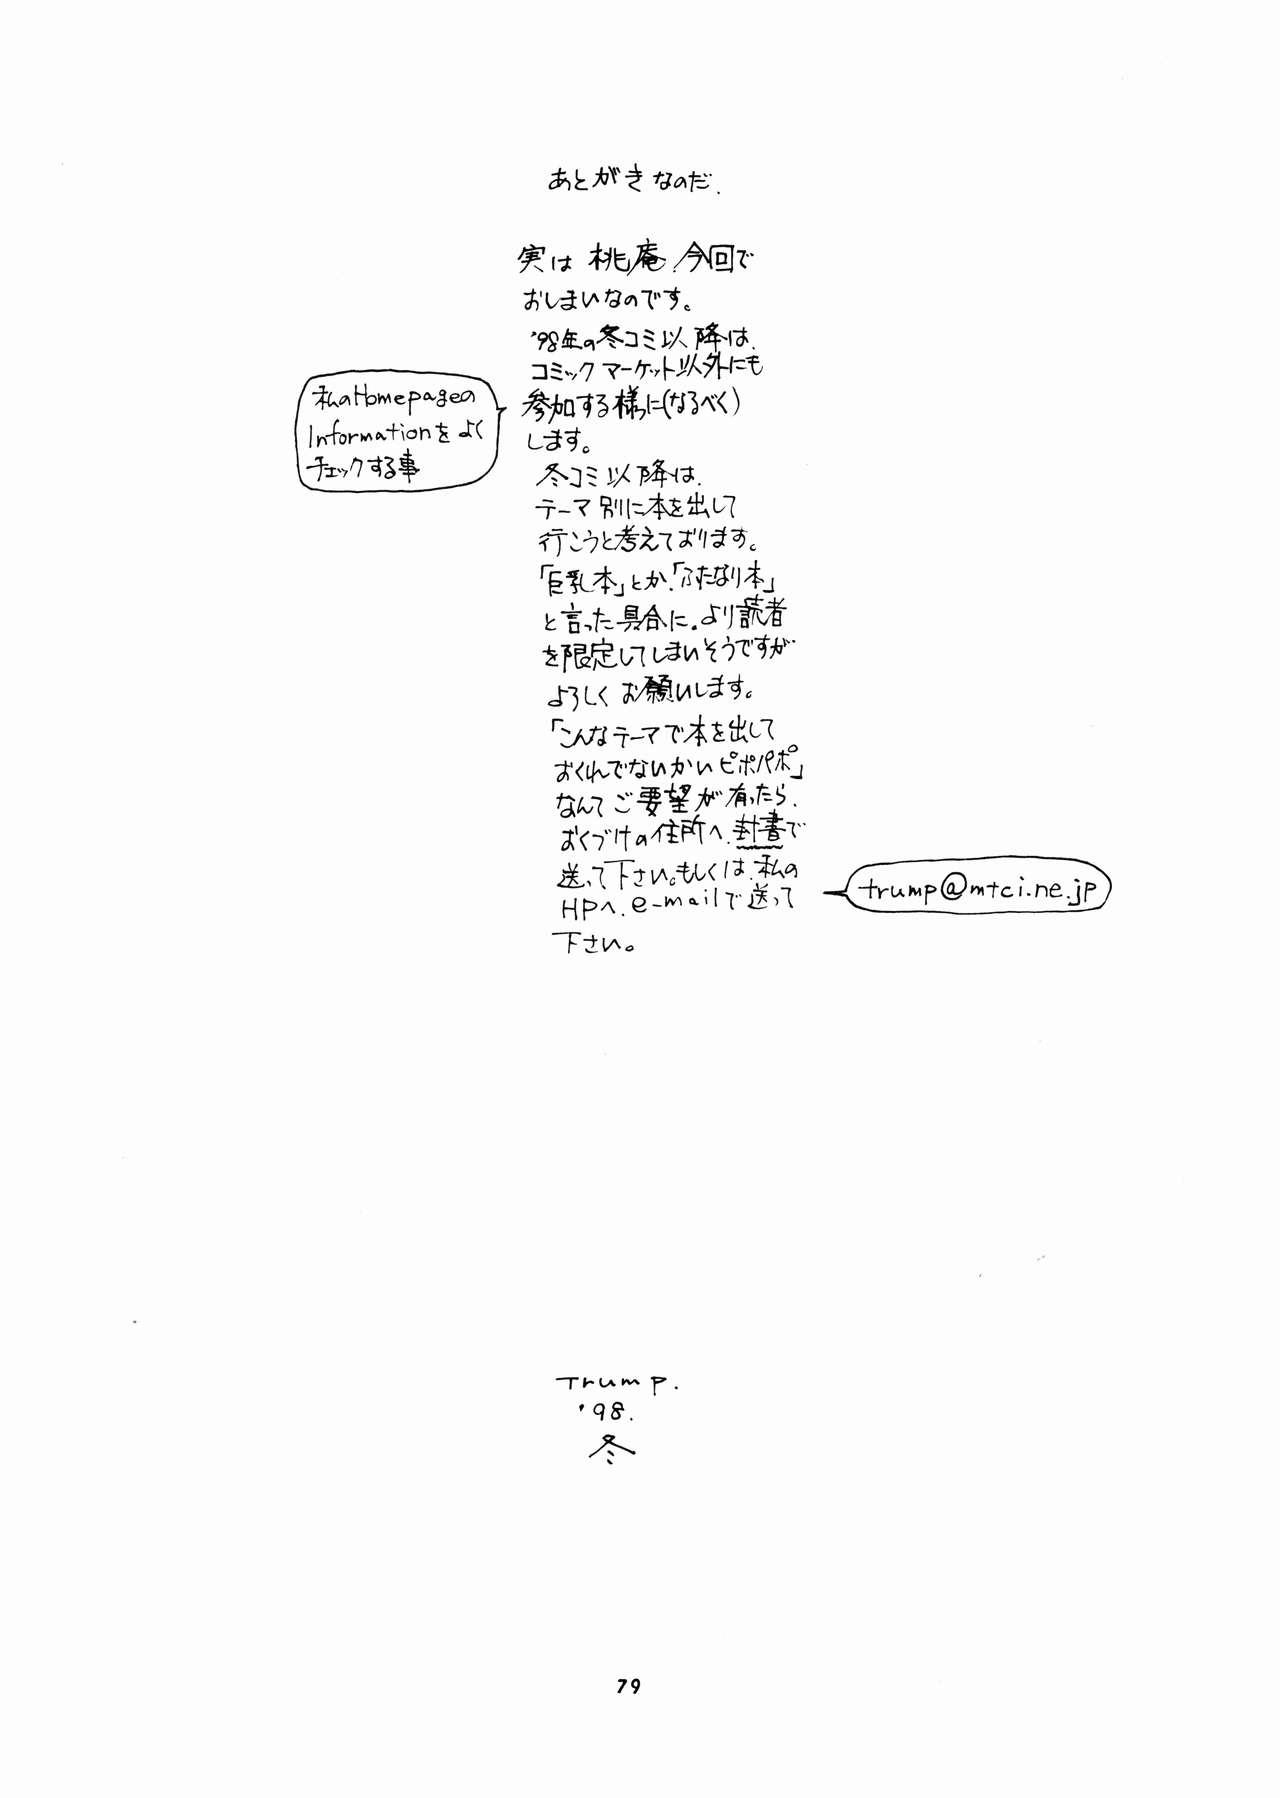 あとがきなのだ.
実は 桃庵.今回で
おしまいなのです。
'98年の冬コミ以降は.
コミックマーケット以外にも
参加する様に(なるべく)
します。
私のHomepageの
Informationをよく
チェックする事
冬コミ以降は.
テーマ別に本を出して
行こうと考えております。
「巨乳本」とか.「ふたなり本」
と言った具合に.より読者
を限定してしまいそうですが
よろしくお願いします。
「こんなテーマで本を出して
おくれでないかいピポパポ」
なんてご要望が有ったら.
おくづけの住所へ.封書で
送って下さい。もしくは.私の
HPへ.e-mailで送って
下さい。
trump@mtci.ne.jp
Trump.
'98.
冬
79